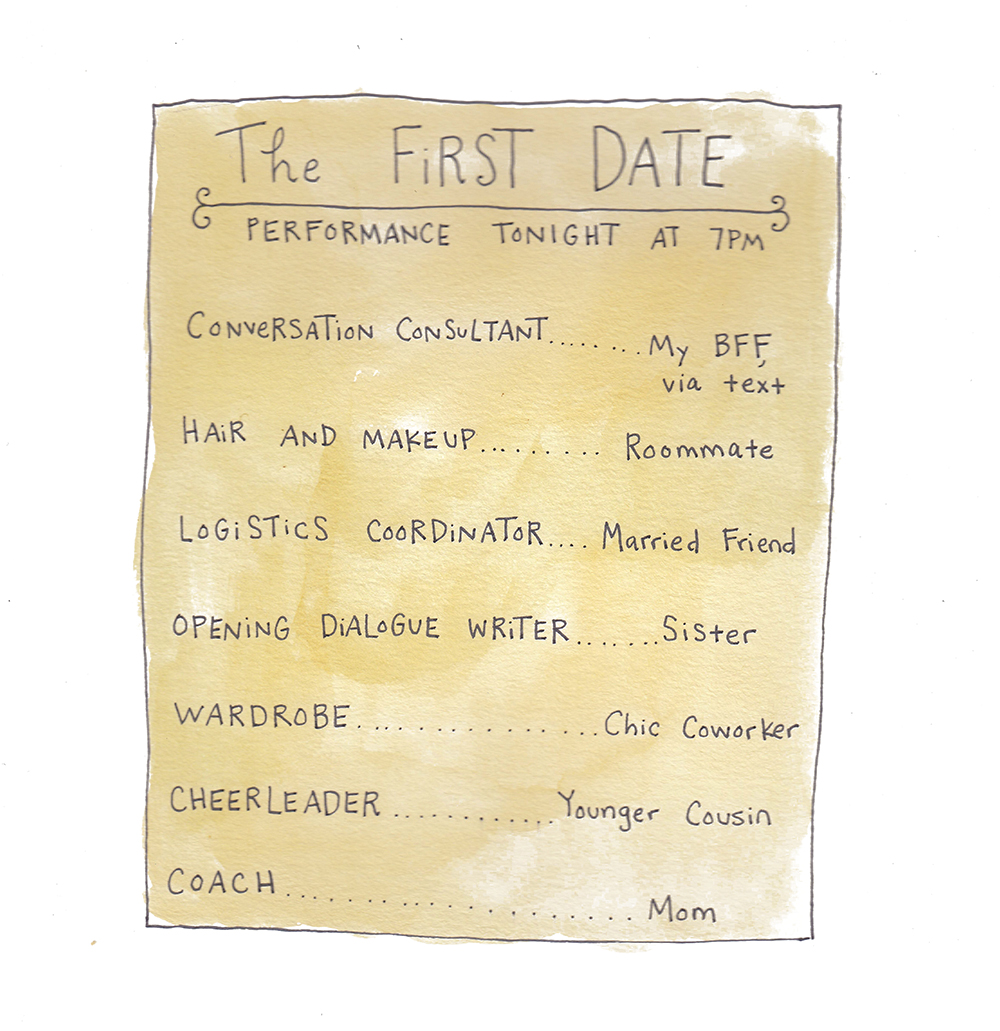 The FiRST DATE
PERFORMANCE TONIGHT AT 7PM
CONVERSATiON CONSuLTANT........My BFF,
via text
HAiR AND MAKEUP......... Roommate
LOGiSTiCS COORDiNATOR.... Married Friend
OPENiNG DiALOGUE WRiTER.......Sister
WARDROBE................Chic Coworker
CHEERLEADER............Younger Cousin
COACH.................. Mom